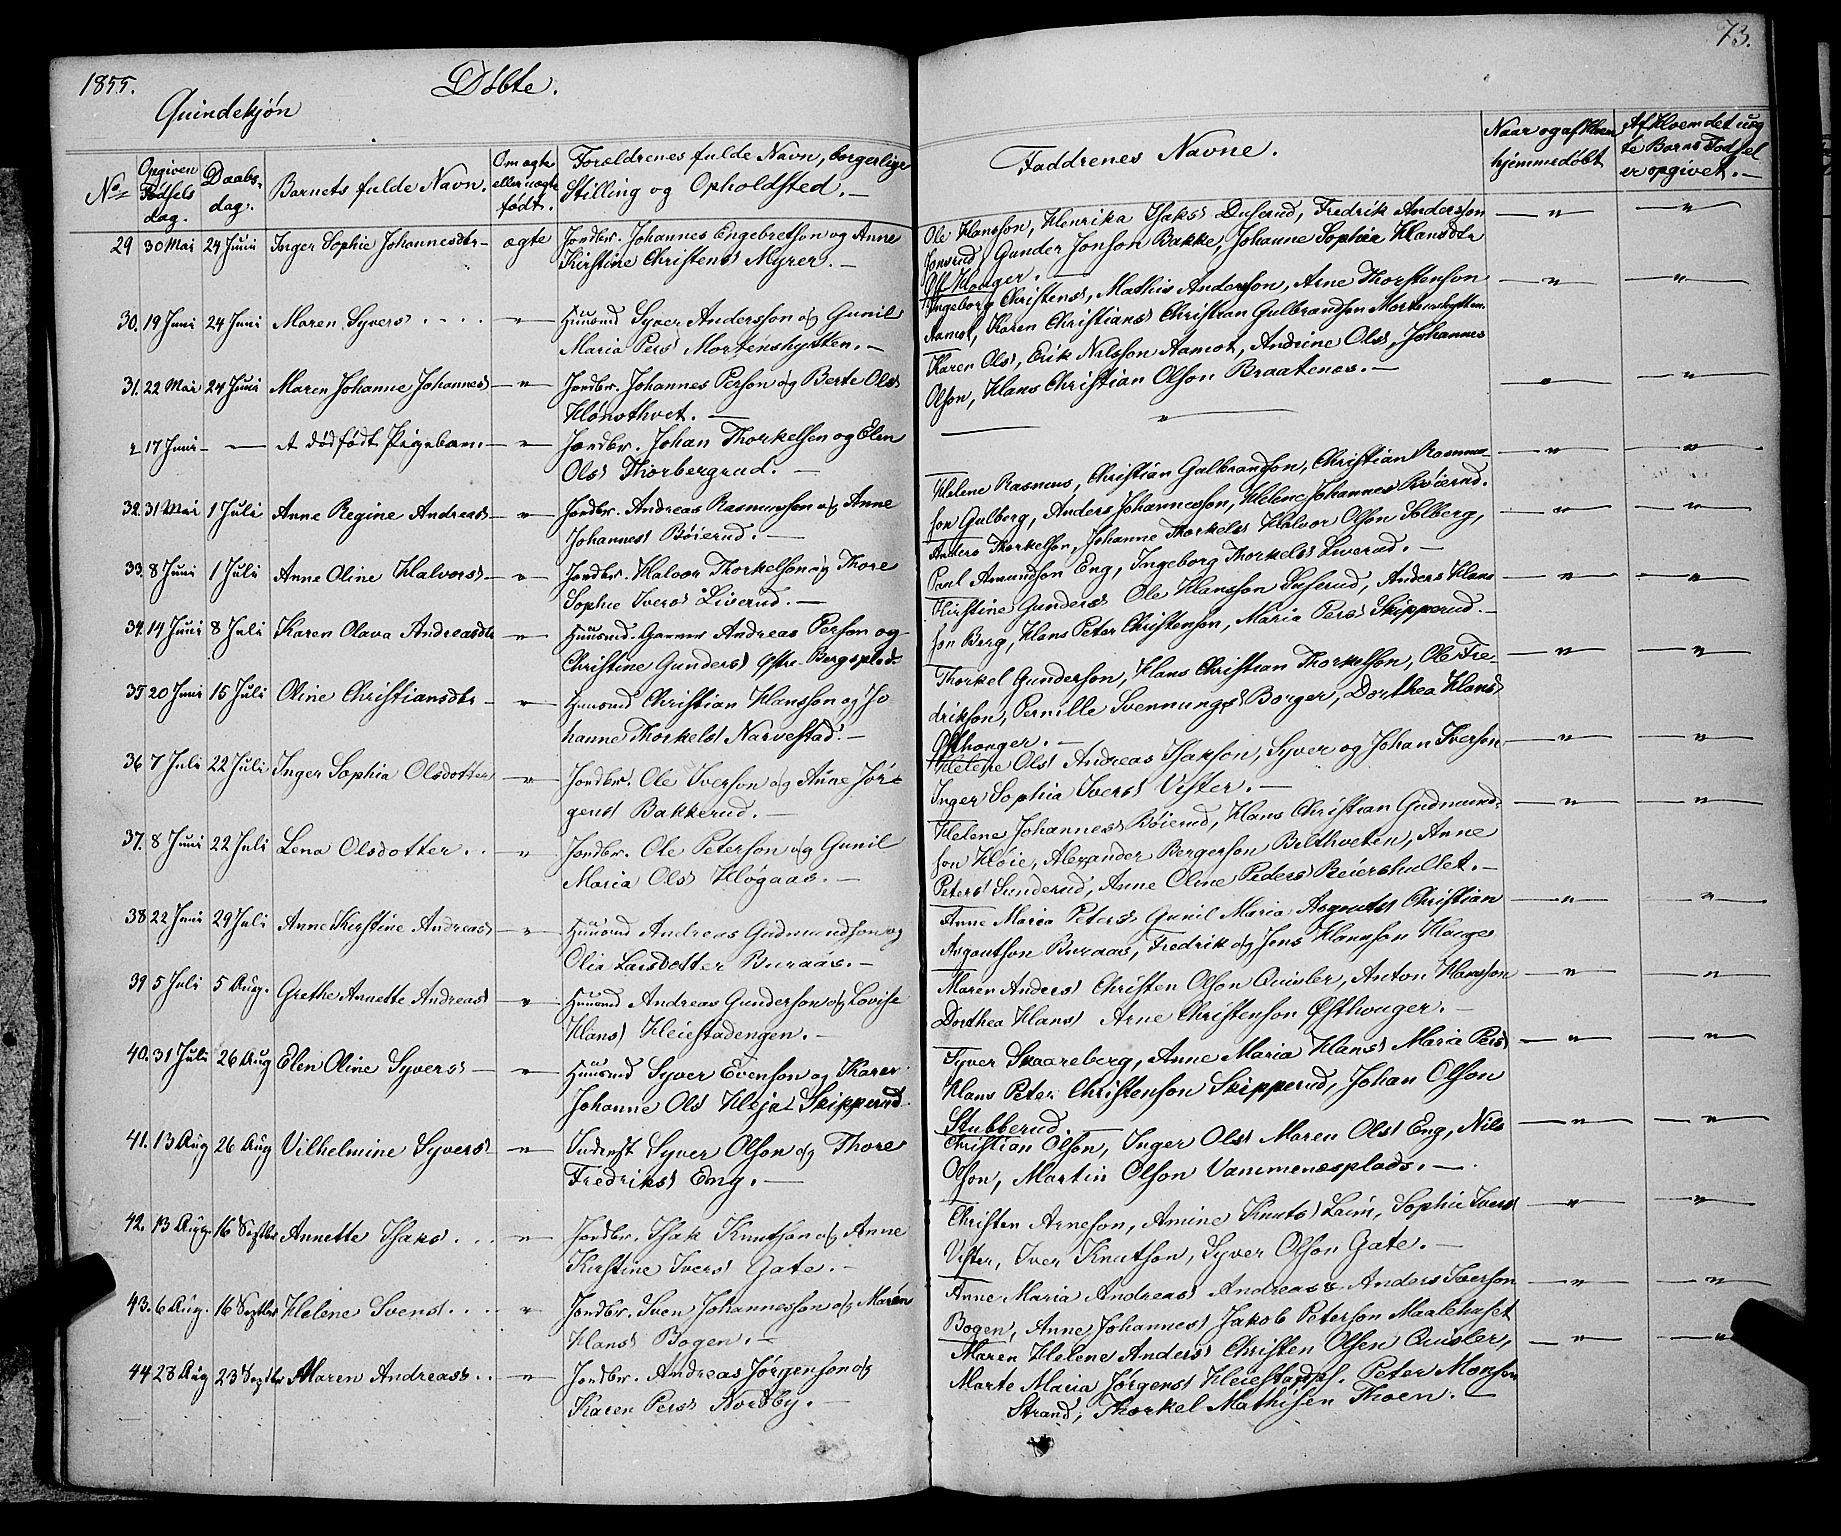 1855. Døbte. 73.
Quindekjøn
No Opgiven Fødsels dag. Daabs-dag. Barnets fulde Navn. Om ægte eller uægte født. Forældrenes fulde Navn, borgerlige Stilling og Opholdsted. Faddrenes Navne. Naar og af Hvem hjemmedøbt Af Hvem det uægte Barns Fødsel er opgivet.
29 30 Mai 24 Juni Inger Sophie Johannesdtr ægte Jordbr. Johannes Engebretson og Anne
Kirstine Christens Myrer.
Ole Hansson, Henrika Isaks Duserud, Fredrik Andersson
Jonsrud, Gunder Jonson Bakke, Johanne Sophie Hansdtr
Øst Houger.
30. 19 Juni 24 Juni Maren Syvers " Huusmd Syver Andersson og Gunil
Maria Pers Mortenshytten.
Ingeborg Christens, Mathis Anderson, Arne Thorstenson
Aamot, Karen Christians Christian Gulbrandson Mortenshytten
31. 22 Mai 24 Juni Maren Johanne Johannes " Jordbr. Johannes Person og Berte Ols
Hønsthvet.
Karen Ols, Erik Nilsson Aamot, Andrine Ols, Johannes
Olson, Hans Christian Olson Braatenes.
2 17 Juni — Et dødfødt Pigebarn " Jordbr. Johan Thorkelsen og Elen
Ols Thorbergrud. "
32. 31 Mai 1 Juli Anne Regine Andreas " Jordbr. Andreas Rasmusson og Anne
Johannes Bøierud.
Helene Rasmus, Christian Gulbrandson, Christian Rasmus
son Gulberg, Anders Johannesson, Helene Johannes Bøierud.
33. 8 Juni 1 Juli Anne Oline Halvors " Jordbr. Halvor Thorkelson og Thore
Sophie Ivers Liverud.
Anders Thorkelson, Johanne Thorkels Halvor Olson Solberg,
Paul Amundson Eng, Ingeborg Thorkels Liverud.
34. 14 Juni 8 Juli Karen Olava Andreasdtr " Huusmd. Garver Andreas Person og
Christine Gunders Østre Bergsplads
Kirstine Gunders Ole Hansson Duserud, Anders Hans
son Berg, Hans Peter Christenson, Maria Pers Skipperud.
35 20 Juni 15 Juli Oline Christiansdtr " Huusmd Christian Hansson og Jo
hanne Thorkels Narvestad.
Thorkel Gunderson, Hans Christian Thorkelson, Ole Fre-
drikson, Pernille Svennungs Borger, Dorthea Hans
Østhouger.
36 7 Juli 22 Juli Inger Sophia Olsdotter " Jordbr. Ole Iverson og Anne Jør-
gens Bakkerud.
Helene Ols Andreas Isakson, Syver og Johan Iverson
Inger Sophia Ivers Vister.
37. 8 Juni 22 Juli Lena Olsdotter " Jordbr. Ole Peterson og Gunil
Maria Ols Høgaas.
Helene Johannes Bøierud, Hans Christian Gudmund-
son Høie, Alexander Bergerson Bilthveten, Anne
Peters Sunderud, Anne Oline Peders Beiershullet.
38 22 Juni 29 Juli Anne Kirstine Andreas " Huusmd Andreas Gudmundson og
Olia Larsdotter Buraas.
Anne Maria Peters Gunil Maria Asgouts Christian
Asgoutson Buraas, Fredrik og Jens Hansson Houge
39 5 Juli 5 Aug. Grethe Annette Andreas " Huusmd Andreas Gunderson og Lovise
Hans Heiestadengen.
Maren Anders Christen Olson Quisler, Anton Hansson
Dorthea Hans Arne Christenson Østhouger.
40. 31 Juli 26 Aug Elen Oline Syvers " Huusmd Syver Evenson og Karen
Johanne Ols Heja Skipperud
Syver Skaareberg, Anne Maria Hans Maria Pers
Hans Peter Christenson Skipperud, Johan Olson
Stubberud.
41. 13 Aug 26 Aug Vilhelmine Syvers " Inderst Syver Olson og Thore
Fredriks Eng.
Christian Olson, Inger Ols Maren Ols Eng, Nils
Olson, Martin Olson Vammenæsplads.
42. 13 Aug. 16 Septbr Annette Isaks " Jordbr. Isak Knutson og Anne
Kirstine Ivers Gate.
Christen Arneson, Amine Knuts Leim, Sophie Ivers
Vister, Iver Knutson, Syver Olson Gate.
43. 6 Aug. 16 Septbr Helene Svens " Jordbr. Sven Johannesson og Maren
Hans Bogen.
Anne Maria Andreas Andreas & Anders Iverson
Bogen, Anne Johannes Jakob Peterson Maalehuset
44 28 Aug 23 Septbr Maren Andreas " Jordbr. Andreas Jørgenson og
Karen Pers Nordby.
Maren Helene Anders Christen Olsen Quisler,
Marte Maria Jørgens Heiestadpl. Peter Monsen
Strand, Thorkel Mathisen Thoen.